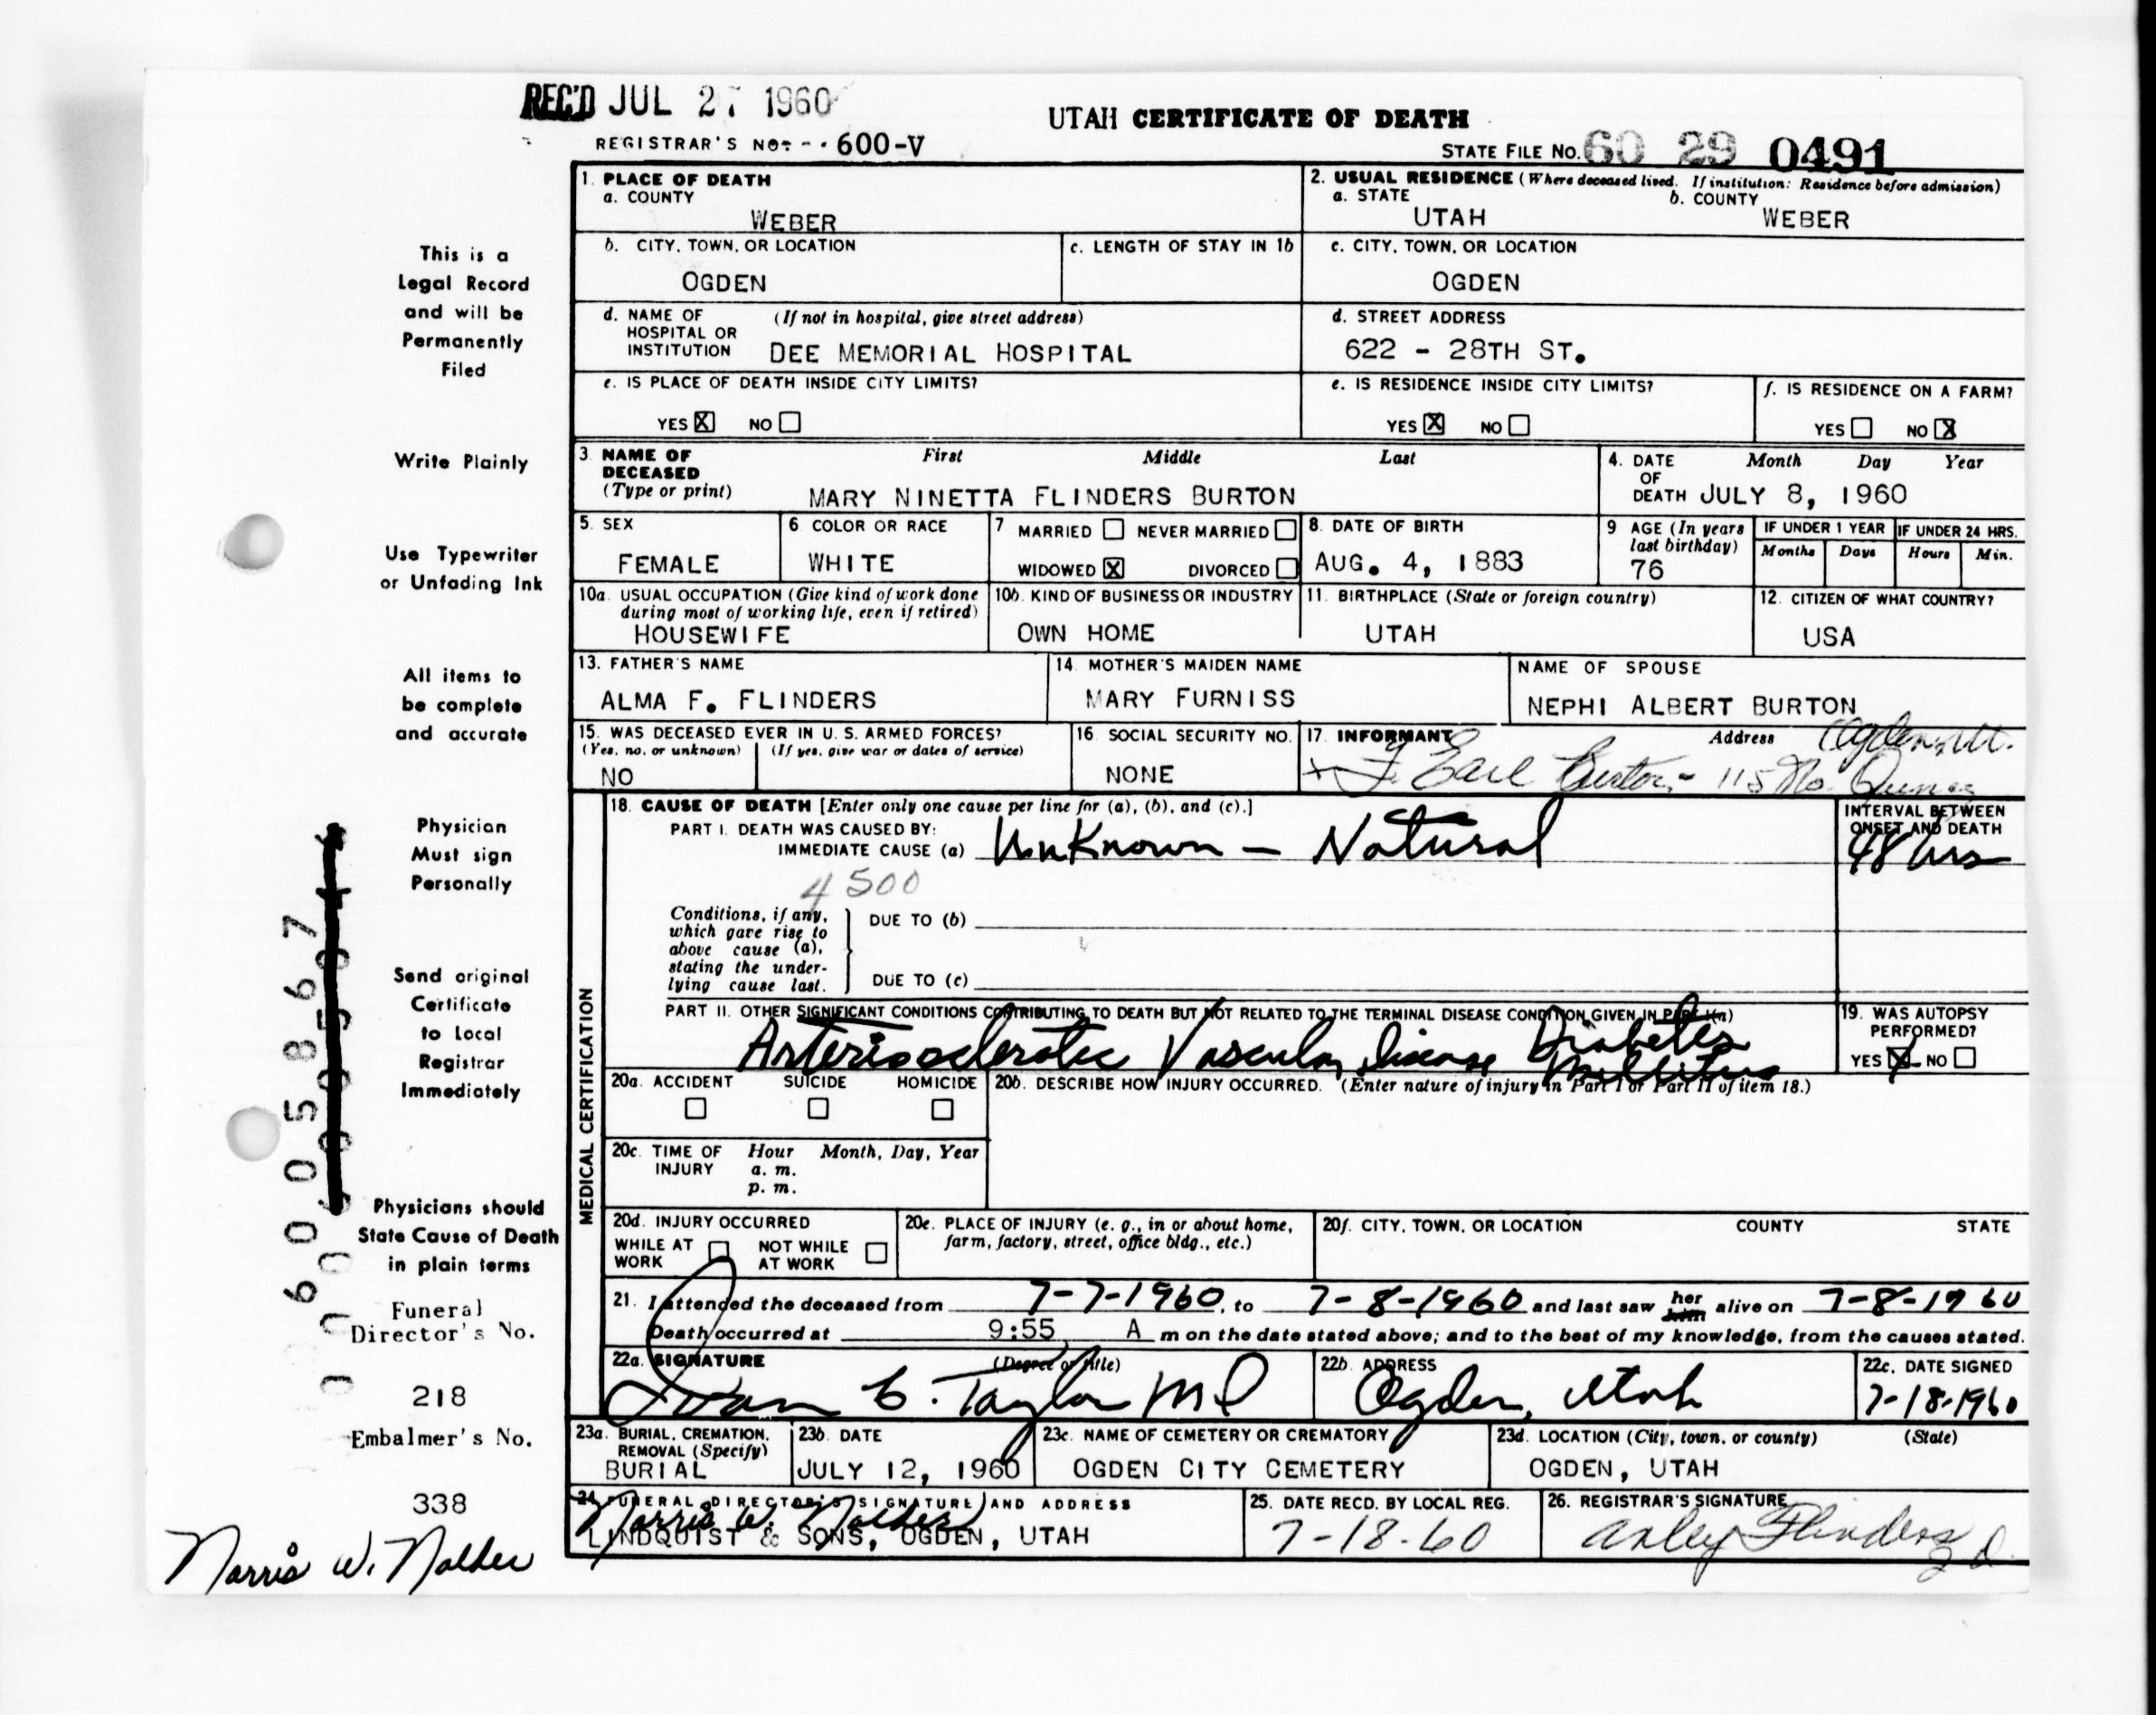 REC'D JUL 27 1960
UTAH CERTIFICATE OF DEATH
REGISTRAR'S NO. 600-V
STATE FILE NO. 60 29 0491
1. PLACE OF DEATH
a. COUNTY
WEBER
2. USUAL RESIDENCE (Where deceased lived. If institution: Residence before admission)
a. STATE b. COUNTY
UTAH WEBER
b. CITY, TOWN, OR LOCATION
OGDEN
c. LENGTH OF STAY IN 1b
c. CITY, TOWN, OR LOCATION
OGDEN
d. NAME OF HOSPITAL OR INSTITUTION (If not in hospital, give street address)
DEE MEMORIAL HOSPITAL
d. STREET ADDRESS
622 - 28TH ST.
e. IS PLACE OF DEATH INSIDE CITY LIMITS?
YES X NO
e. IS RESIDENCE INSIDE CITY LIMITS?
YES X NO
f. IS RESIDENCE ON A FARM?
YES NO X
3. NAME OF DECEASED (Type or print)
First Middle Last
MARY NINETTA FLINDERS BURTON
4. DATE OF DEATH
Month Day Year
JULY 8, 1960
5. SEX
FEMALE
6 COLOR OR RACE
WHITE
7 MARRIED NEVER MARRIED
WIDOWED X DIVORCED
8. DATE OF BIRTH
AUG. 4, 1883
9 AGE (In years last birthday)
76
IF UNDER 1 YEAR
Months Days
IF UNDER 24 HRS.
Hours Min.
10a. USUAL OCCUPATION (Give kind of work done during most of working life, even if retired)
HOUSEWIFE
10b. KIND OF BUSINESS OR INDUSTRY
OWN HOME
11. BIRTHPLACE (State or foreign country)
UTAH
12. CITIZEN OF WHAT COUNTRY?
USA
13. FATHER'S NAME
ALMA F. FLINDERS
14. MOTHER'S MAIDEN NAME
MARY FURNISS
NAME OF SPOUSE
NEPHI ALBERT BURTON
15. WAS DECEASED EVER IN U. S. ARMED FORCES?
(Yes, no, or unknown) (If yes, give war or dates of service)
NO
16. SOCIAL SECURITY NO.
NONE
17. INFORMANT Address
Ogden, Ut.
Earl Burton - 115 No.
MEDICAL CERTIFICATION
18. CAUSE OF DEATH [Enter only one cause per line for (a), (b), and (c).]
PART I. DEATH WAS CAUSED BY:
IMMEDIATE CAUSE (a) Unknown - Natural
4500
INTERVAL BETWEEN ONSET AND DEATH
48 hrs
Conditions, if any, which gave rise to above cause (a), stating the underlying cause last.
DUE TO (b)
DUE TO (c)
PART II. OTHER SIGNIFICANT CONDITIONS CONTRIBUTING TO DEATH BUT NOT RELATED TO THE TERMINAL DISEASE CONDITION GIVEN IN PART I(a)
Arteriosclerotic Vascular disease Diabetes Mellitus
19. WAS AUTOPSY PERFORMED?
YES X NO
20a. ACCIDENT SUICIDE HOMICIDE
20b. DESCRIBE HOW INJURY OCCURRED. (Enter nature of injury in Part I or Part II of item 18.)
20c. TIME OF INJURY Hour Month, Day, Year
a. m.
p. m.
20d. INJURY OCCURRED
WHILE AT WORK NOT WHILE AT WORK
20e. PLACE OF INJURY (e. g., in or about home, farm, factory, street, office bldg., etc.)
20f. CITY, TOWN, OR LOCATION COUNTY STATE
21. I attended the deceased from 7-7-1960, to 7-8-1960 and last saw her him alive on 7-8-1960
Death occurred at 9:55 A m on the date stated above; and to the best of my knowledge, from the causes stated.
22a. SIGNATURE (Degree or title)
Ivan C. Taylor MD
22b. ADDRESS
Ogden, Utah
22c. DATE SIGNED
7-18-1960
23a. BURIAL, CREMATION, REMOVAL (Specify)
BURIAL
23b. DATE
JULY 12, 1960
23c. NAME OF CEMETERY OR CREMATORY
OGDEN CITY CEMETERY
23d. LOCATION (City, town, or county) (State)
OGDEN, UTAH
24. FUNERAL DIRECTOR'S SIGNATURE AND ADDRESS
Norris W. Nalder
LINDQUIST & SONS, OGDEN, UTAH
25. DATE RECD. BY LOCAL REG.
7-18-60
26. REGISTRAR'S SIGNATURE
Arley Flinders
This is a
Legal Record
and will be
Permanently
Filed
Write Plainly
Use Typewriter
or Unfading Ink
All items to
be complete
and accurate
Physician
Must sign
Personally
Send original
Certificate
to Local
Registrar
Immediately
Physicians should
State Cause of Death
in plain terms
Funeral
Director's No.
218
Embalmer's No.
338
Norris W. Nalder
600058567